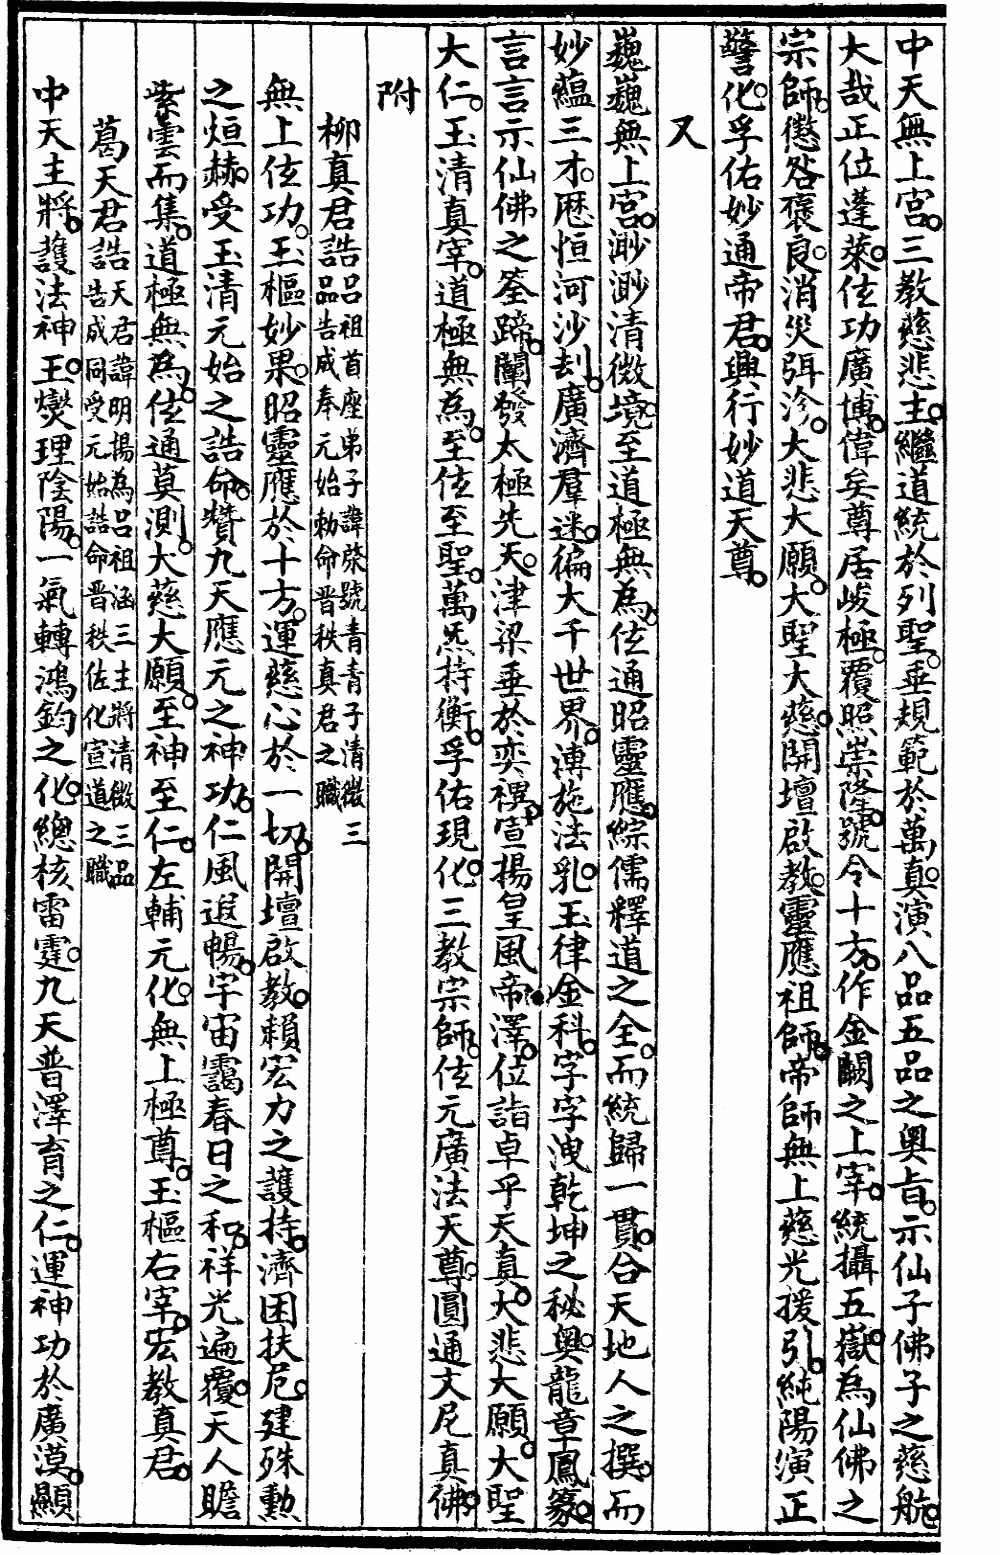 中天無上宮三教慈悲主繼道統於列聖垂規範於萬真演八品五品之奧旨示仙子佛子之慈航
大哉正位蓬萊佐功廣博偉矣尊居峻極覆照崇隆號令十方作金闕之上宰統攝五嶽為仙佛之
宗師懲咎獎良消災弭沴大悲大願大聖大慈開壇啟教靈應祖師帝師無上慈光援引純陽演正
警化孚佑妙通帝君興行妙道天尊
又
巍巍無上宮渺渺清微境至道極無為佐通昭靈應綜儒釋道之全而統歸一貫合天地人之撰而
妙蘊三才歷恒河沙刦廣濟羣迷徧大千世界溥施法乳玉律金科字字洩乾坤之秘奧龍章鳳篆
言言示仙佛之筌蹄闡發太極先天津梁垂於奕禩宣揚皇風帝澤位詣卓乎天真大悲大願大聖
大仁玉清真宰道極無為至佐至聖萬炁持衡孚佑現化三教宗師佐元廣法天尊圓通文尼真佛
附
柳真君誥呂祖首座弟子諱棨號青青子清微三品告成奉元始勅命晋秩真君之職
無上佐功玉樞妙果昭靈應於十方運慈心於一切開壇啟教賴宏力之護持濟困扶危建殊勳
之烜赫受玉清元始之誥命贊九天應元之神功仁風遐暢宇宙靄春日之和祥光遍覆天人瞻
紫雲而集道極無為佐通莫測大慈大願至神至仁左輔元化無上極尊玉樞右宰宏教真君
葛天君誥天君諱明揚為呂祖涵三主將清微三品告成同受元始誥命晋秩佐化宣道之職
中天主將護法神王燮理陰陽一氣轉鴻鈞之化總核雷霆九天普澤育之仁運神功於廣漠顯